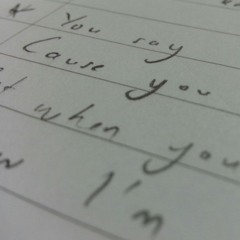 You say
Cause you
when you
I'm